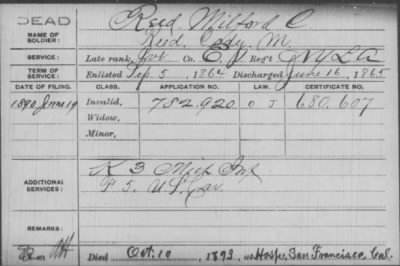 DEAD
NAME OF SOLDIER:
Reid, Milford C.
Reid, Cady, M.
SERVICE: Late rank, Co. C, Reg't NYLA
TERM OF SERVICE: Enlisted Sep. 5, 1864 Discharged June 16, 1865
DATE OF FILING. CLASS. APPLICATION NO. LAW. CERTIFICATE NO.
1890 June 19 Invalid, 782,920 J 680,607
Widow,
Minor,
ADDITIONAL SERVICES:
K 3 Mich Inf
F 5, U.S. Cav
REMARKS:
Died Oct. 10, 1893, at Hosp, San Francisco, Cal.